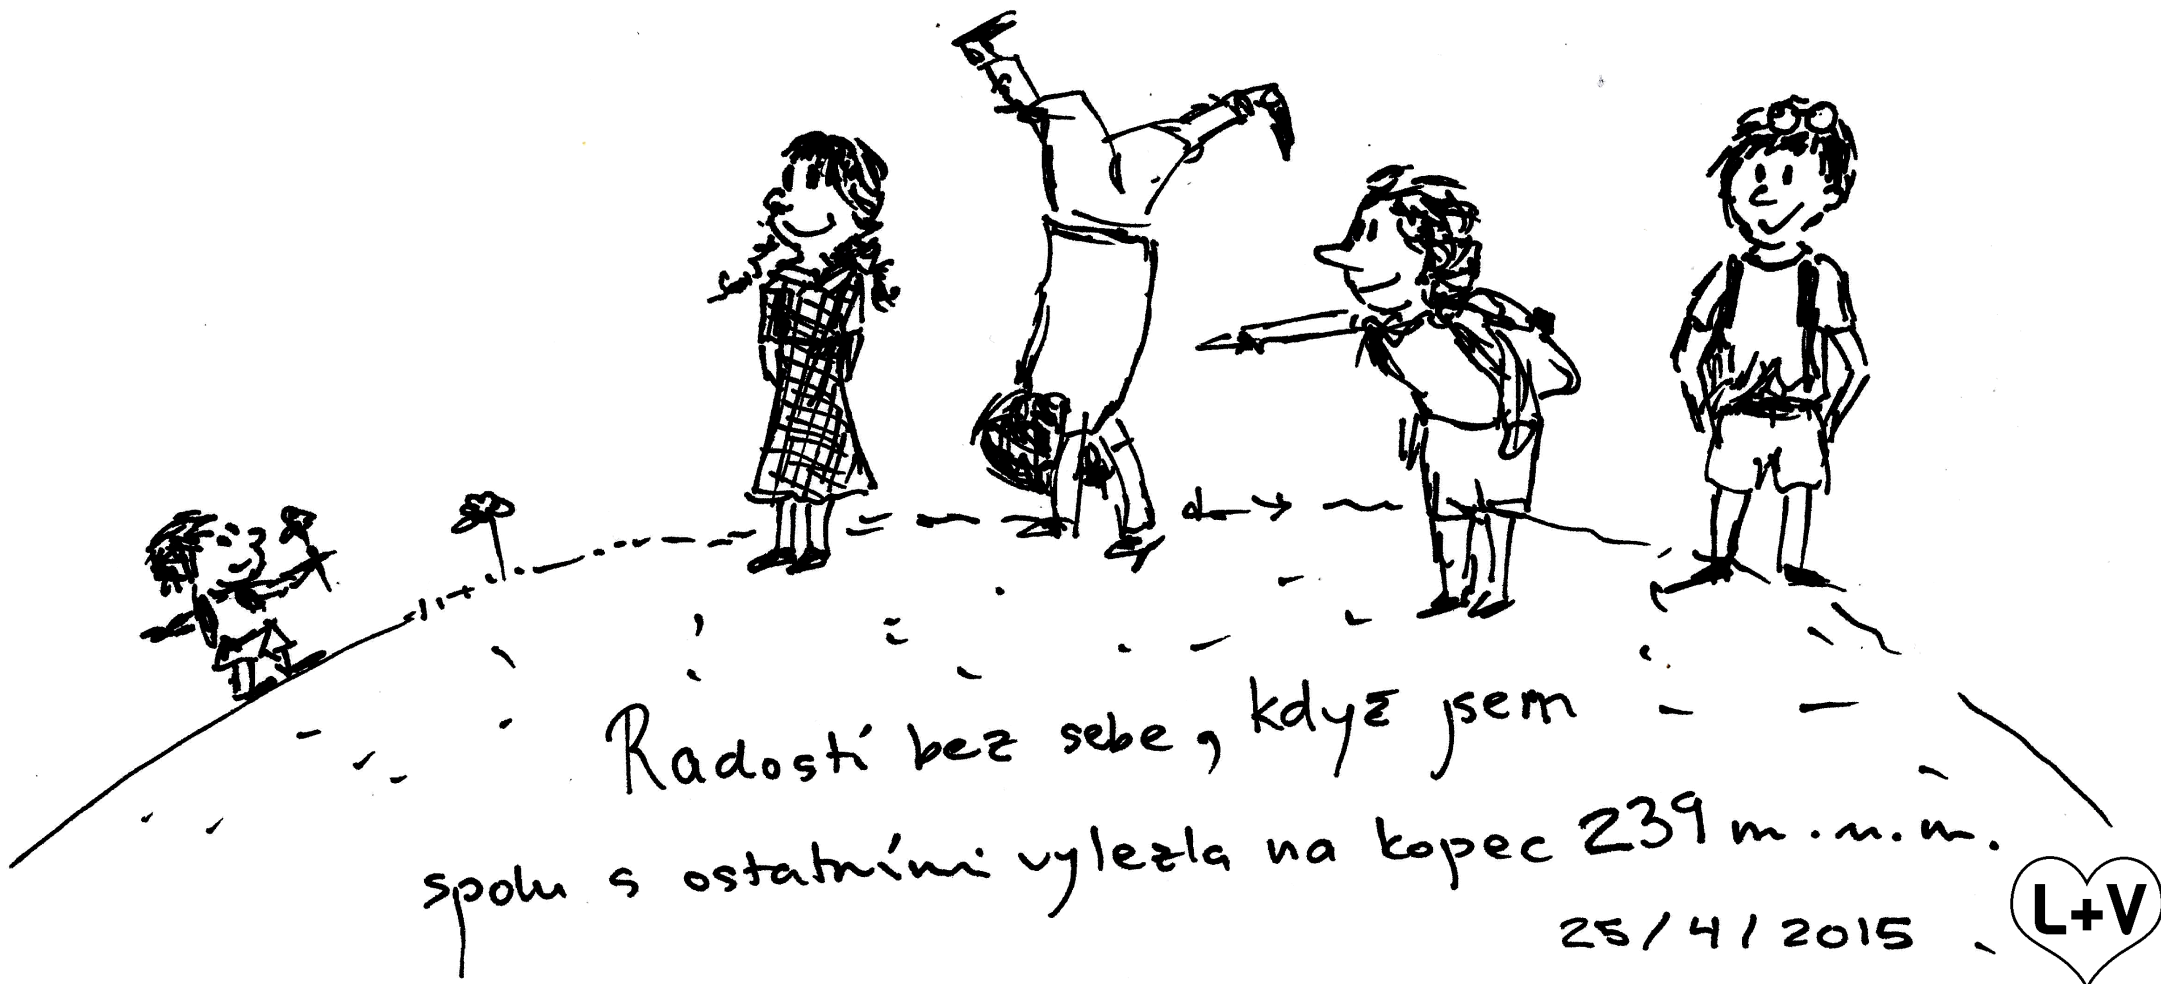 Radostí bez sebe, když jsem
spolu s ostatními vylezla na kopec 239 m.n.m.
25/4/2015
L+V